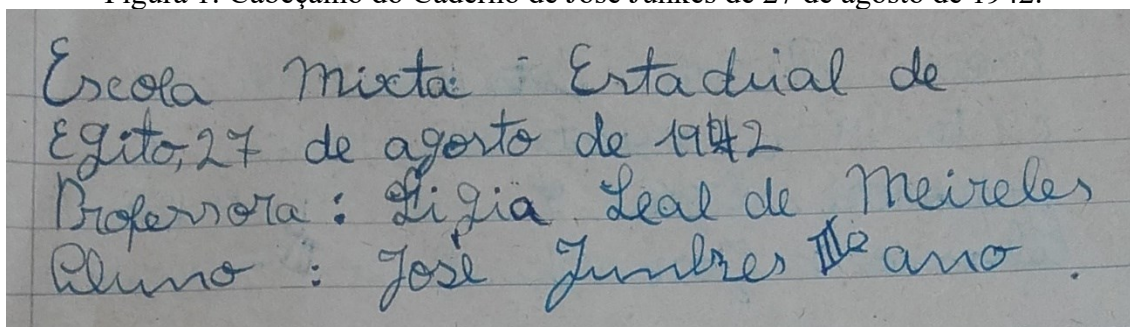 Figura 1: Cabeçalho do Caderno de José Junkes de 27 de agosto de 1942.
Escola Mixta Estadual de
Egito, 27 de agosto de 1942
Professora : Ligia Leal de Meireles
Aluno : José Junkes IIº ano .